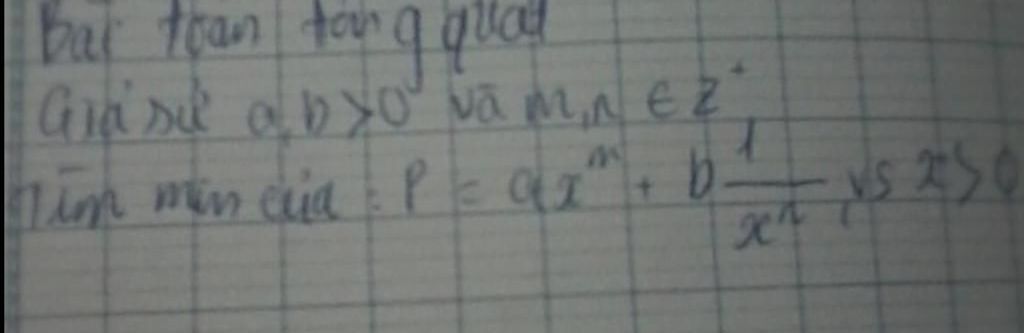 Bài toán tổng quát
Giả sử a,b>0 và m,n ∈ Z⁺
Tìm min của : P = ax^m + b 1/x^n , vs x>0